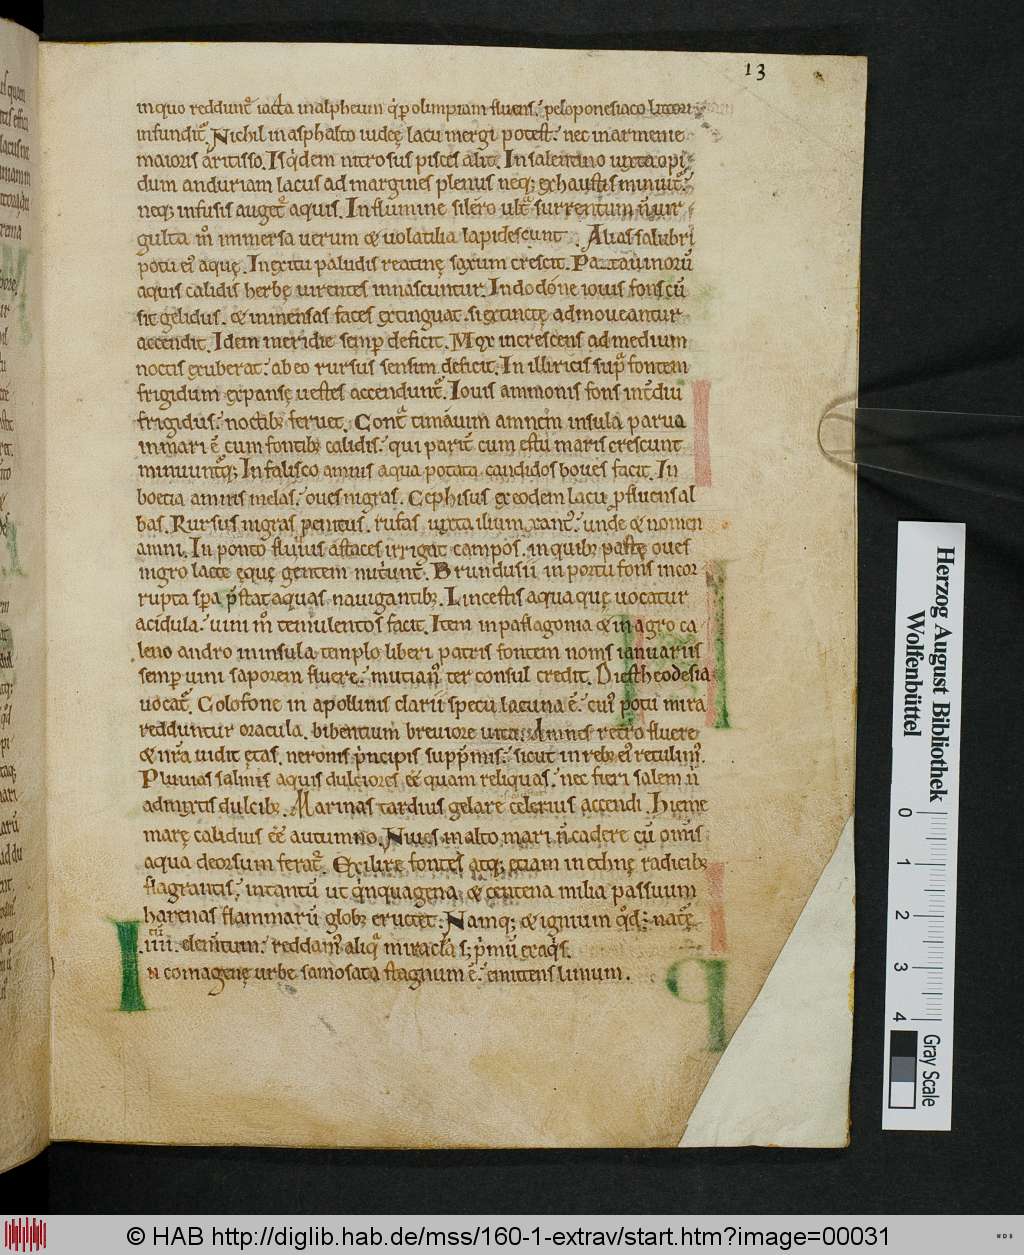 13
in quo redduntᷣ iacta in alpheum qͥ p olimpiam fluens. peloponesiaco littori
infunditᷣ. Nichil in asphalto iudeę lacu mergi potest. nec in armenie
maioris aritisso. Is qͥdem nitrosus pisces alit. In salentino iuxta opi
dum anduriam lacus ad margines plenus neqꝫ exhaustis minuitᷣ.
neqꝫ infusis augetᷣ aquis. In flumine silero ultᷣ surrentum ñ uir
gulta m̊ immersa uerum & uolatilia lapidescunt. Alias salubri
potu eiꝰ aquę. In exitu paludis reatinę saxum crescit. Patauinorū
aquis calidis herbę uirentes innascuntur. In dodone iouis fons cū
sit gelidus. & inmensas faces extinguat. si extinctę admoueantur
accendit. Idem meridie semp deficit. Mox increscens ad medium
noctis exuberat. ab eo rursus sensim deficit. In illiricis supᷓ fontem
frigidum expansę uestes accenduntᷣ. Iouis ammonis fons intᷣdiu
frigidus. noctibꝫ feruet. Contᷓ timauum amnem insula parua
in mari ē cum fontibꝫ calidis. qui paritᷣ cum estu maris crescunt
minuuntqꝫ. In falisco amnis aqua potata candidos boues facit. In
boetia amnis melas. oues nigras. Cephisus ex eodem lacu ꝓfluens al
bas. Rursus nigras peneus. rufas iuxta ilium xantꝰ. unde & nomen
amni. In ponto fluuius astaces irrigat campos. in quibꝫ pastę oues
nigro lacte equę gentem nutᷣiunt. Brundusii in portu fons incor
rupta sp̄a p̄stat aquas nauigantibꝫ. Lincestis aqua quę uocatur
acidula. uini m̊ temulentos facit. Item in paflagonia & in agro ca
leno andro in insula templo liberi patris fontem nonis ianuariis
semp uini saporem fluere. mucianꝰ ter consul credit. Dies theodesia
uocatᷣ. Colofone in apollinis clarii specu lacuna ē. cuiꝰ potu mira
redduntur oracula. bibentium breuiore uita. Amnes retro fluere
& nr̄a uidit ętas. neronis pͥncipis supp̄mis. sicut in rebꝫ eiꝰ retulimꝰ.
Pluuies salinis aquis dulciores eē quam reliquas. nec fieri salem ñ
admixtis dulcibꝫ. Marinas tardius gelare celerius accendi. Hieme
marę calidius eē autumno. Niues in alto mari ñ cadere cū om̄is
aqua deorsum feratᷣ. Exilire fontes atqꝫ etiam in ethnę radicibꝫ
flagrantis. in tantū ut qͥnquagena & centena milia passuum
harenas flammarū globꝫ eructet. Namqꝫ & ignium qͦd. natᷓę
iiii. elem̄tum. reddamꝰ aliqͣ miracla s; pͥmū ex aqͥs.
In comagenę urbe samosata stagnum ē. emittens limum.
Herzog August Bibliothek
Wolfenbüttel
0 1 2 3 4
Gray Scale
© HAB http://diglib.hab.de/mss/160-1-extrav/start.htm?image=00031